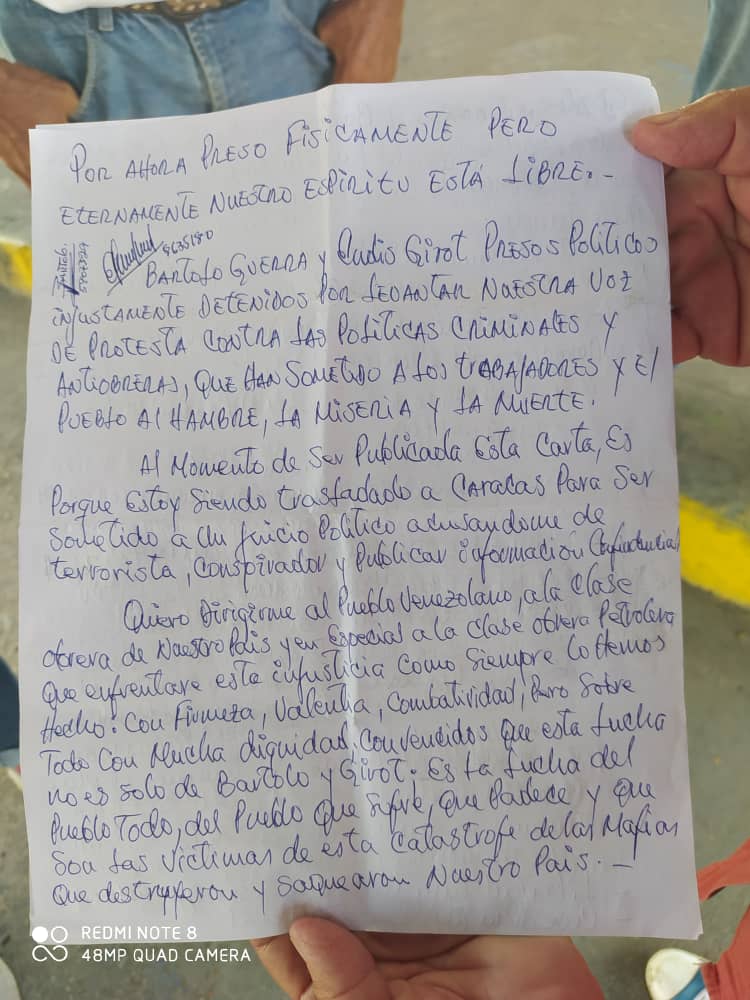 POR AHORA PRESO FISICAMENTE PERO
ETERNAMENTE NUESTRO ESPIRITU ESTÁ LIBRE.-
8635180
BARTOLO GUERRA y Eudis Girot PRESOS POLITICOS
INJUSTAMENTE DETENIDOS POR LEVANTAR NUESTRA VOZ
DE PROTESTA CONTRA LAS POLITICAS CRIMINALES Y
ANTIOBRERAS, QUE HAN SOMETIDO A LOS TRABAJADORES Y El
PUEBLO Al HAMBRE, LA MISERIA Y LA MUERTE.
Al Momento de Ser Publicada Esta Carta, Es
Porque Estoy Siendo trasladado a CARACAS Para Ser
Sometido a Un Juicio Politico acusandome de
terrorista, Conspirador y Publicar informacion Confidencial
Quiero Dirigirme al Pueblo Venezolano, a la Clase
obrera de Nuestro Pais y en Especial a la Clase obrera Petrolera
Que enfrentare esta injusticia Como Siempre lo Hemos
Hecho: Con Firmeza, Valentia, Combatividad, Pero Sobre
Todo Con Mucha dignidad. Convencidos que esta Lucha
no es Solo de Bartolo y Girot. Es la lucha del
Pueblo Todo, del Pueblo Que Sufre, Que Padece y que
Son las Victimas de esta Catastrofe de las Mafias
Que destruyeron y Saquearon Nuestro Pais.-
REDMI NOTE 8
48MP QUAD CAMERA